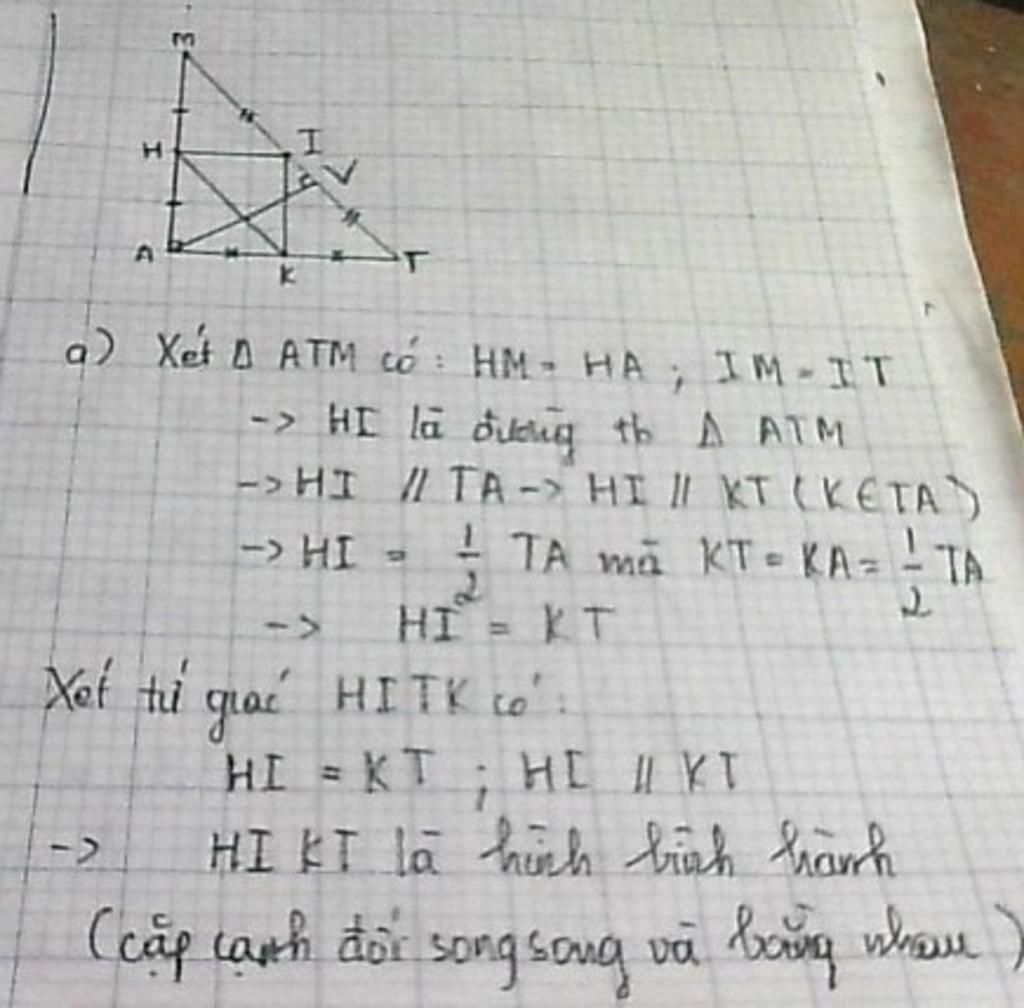 M
H I
V
A K T
a) Xét Δ ATM có: HM = HA ; IM = IT
-> HI là đường tb Δ ATM
-> HI // TA -> HI // KT (K ∈ TA)
-> HI = 1/2 TA mà KT = KA = 1/2 TA
-> HI = KT
Xét tứ giác HITK có:
HI = KT ; HI // KT
-> HIKT là hình bình hành
(cặp cạnh đối song song và bằng nhau)